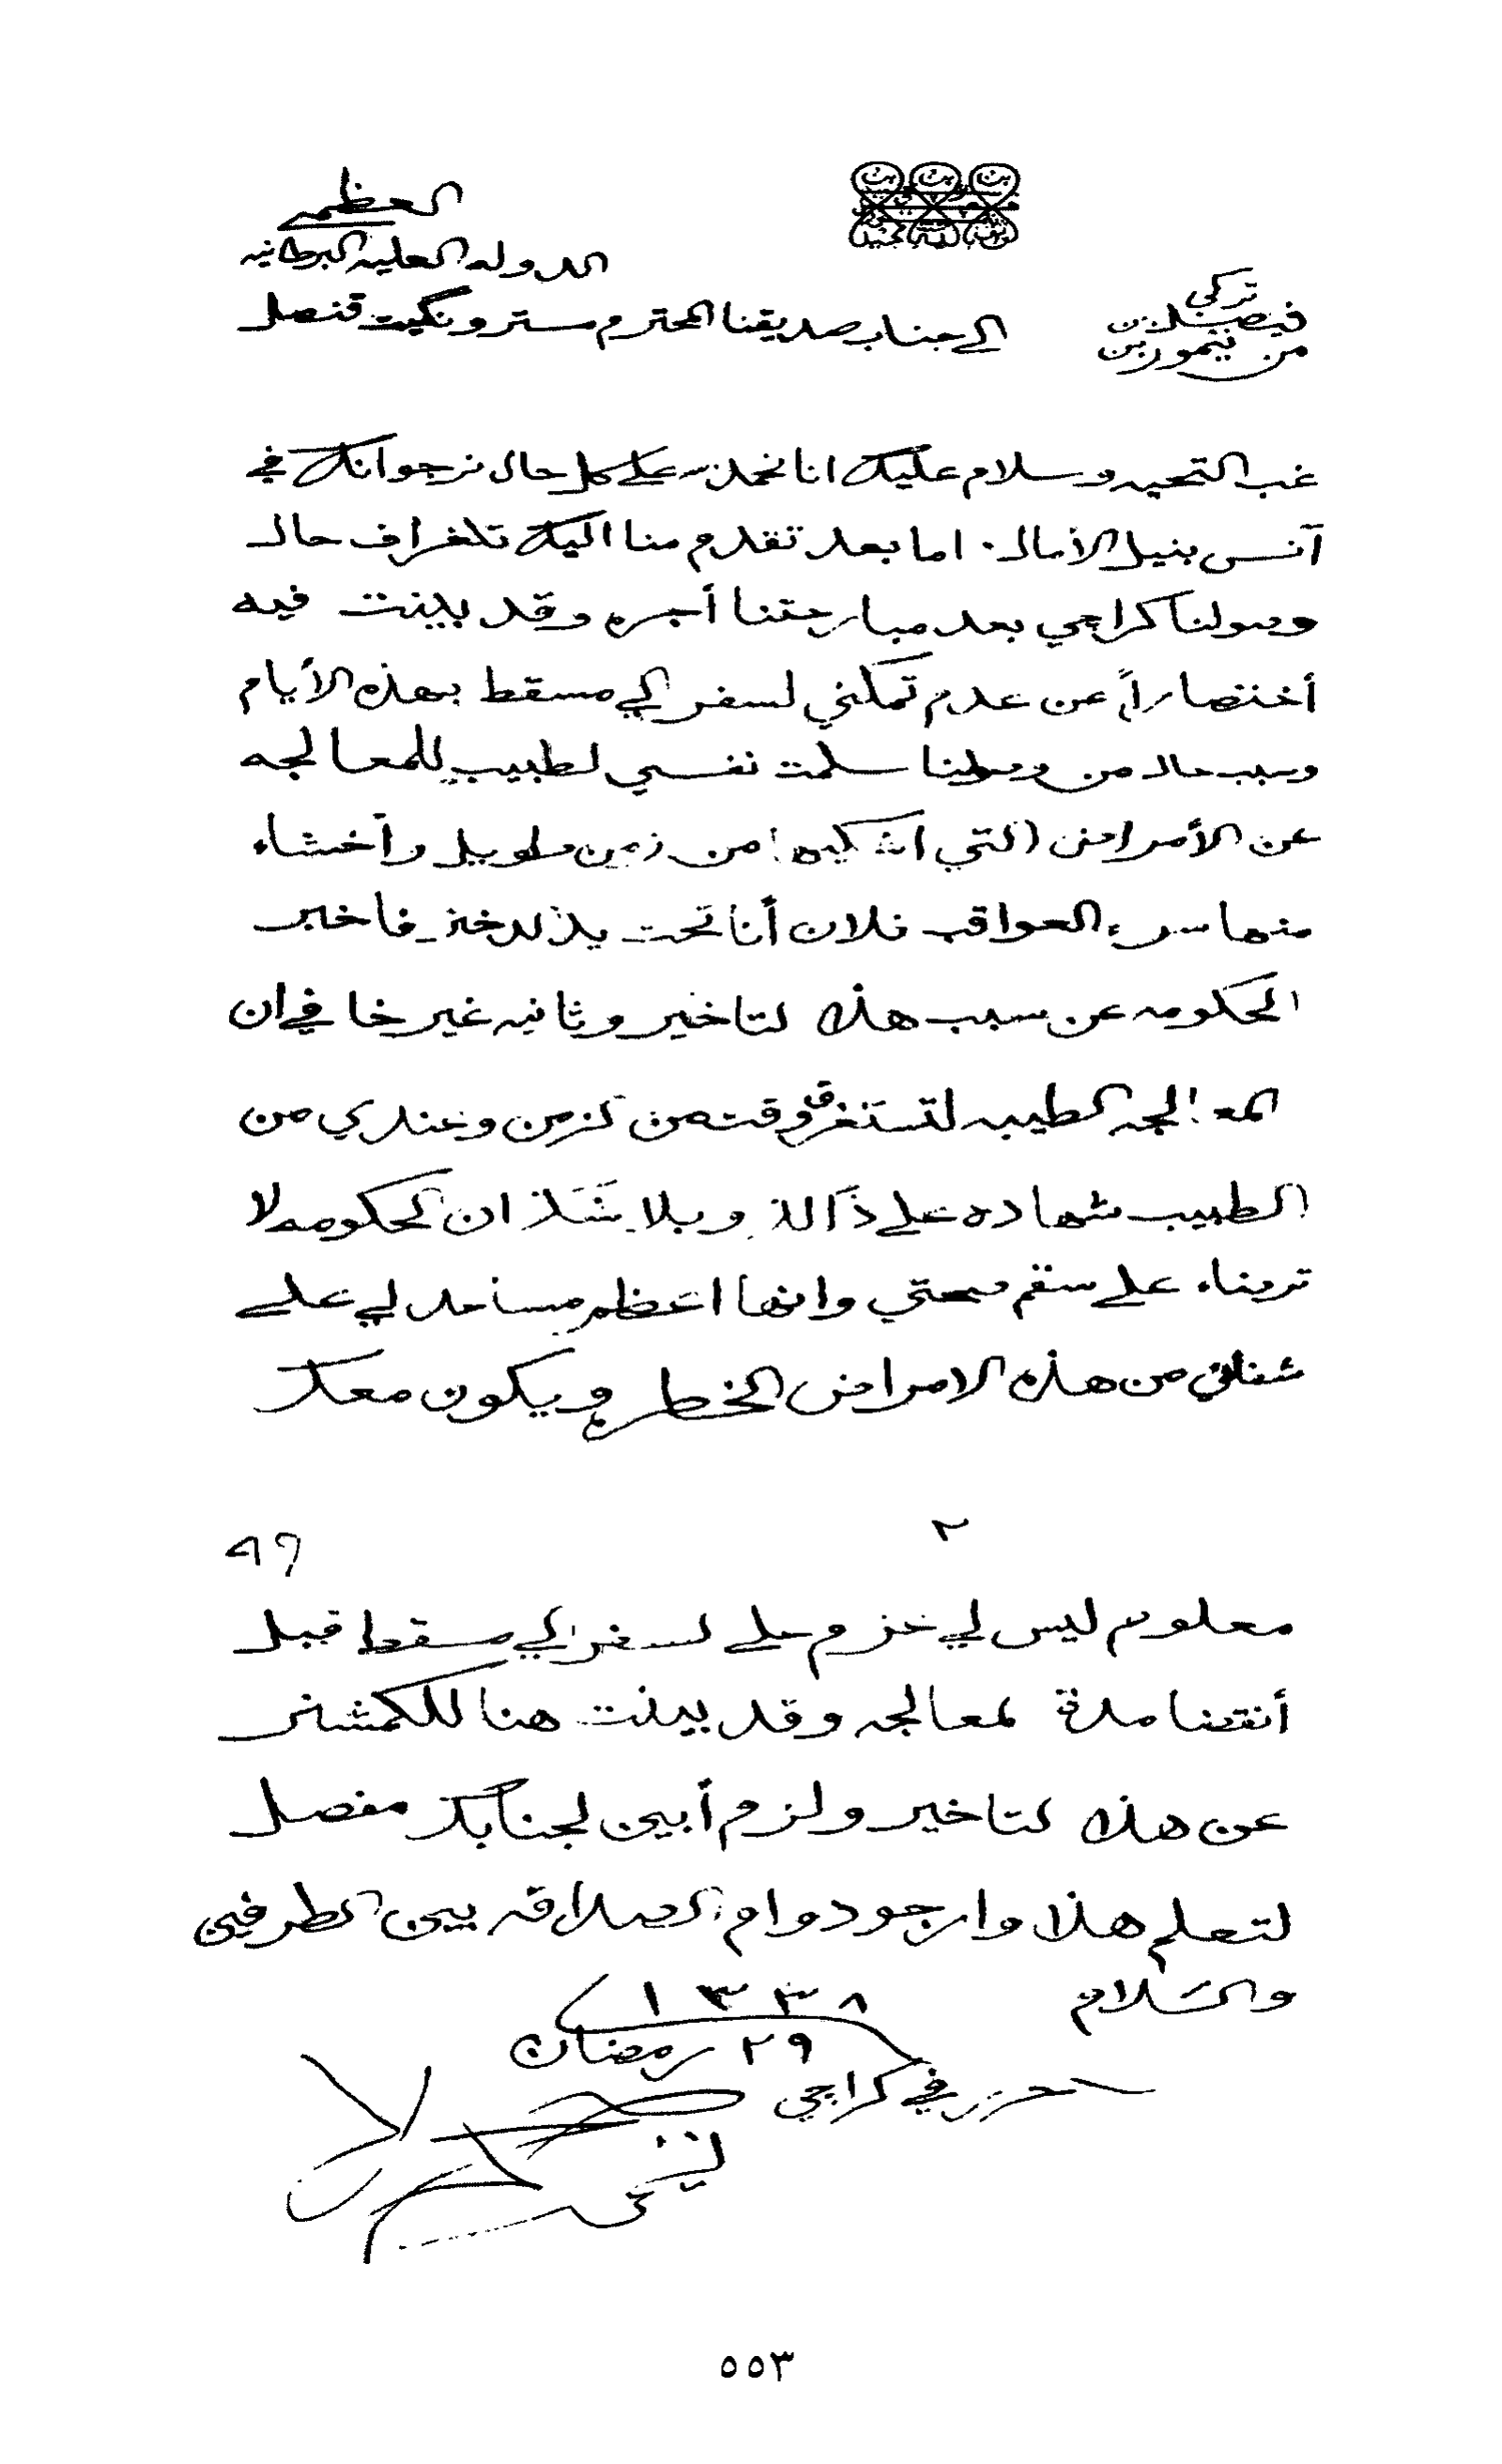 من تيمور بن
فيصل بن
تركي
الى جناب صديقنا المحترم مستر ونگيت قنصل
الدوله العليه البرطانيه
العظمى
غب التحيه وسلام عليك انا نحمد علي كل حال نرجو انك في
آنس بنيل الأمال. اما بعد تقدم منا اليك تلغراف حال
وصولنا كراچي بعد مبارحتنا أجره وقد بينت فيه
أختصاراً عن عدم تمكني لسفر الي مسقط بهذه الأيام
وسبب حال من وصولنا سلمت نفسي لطبيب للمعالجه
عن الأمراض التي اشكيها من زمن طويل وآخشاء
منها سوء العواقب فلان أنا تحت يد فاخبر
الحكومه عن سبب هذا لتاخير وثانيه غير خافي ان
المعالجه الطبيه لتستغرق وقت من لزمن وعندي من
الطبيب شهاده علي ذالك وبلا شك ان لحكومه لا
ترضاء علي سقم صحتي وانها اعظم مساعد لي علي
شفائي من هذه الامراض الخطره ويكون معك
٢
٤٩
معلوم ليس لي عزم علي لسفر الي مسقط قبل
أنقضا مدة لمعالجه وقد بينت هنا للكمشنر
عن هذا لتاخير ولزم أبين لجنابك مفصل
لتعلم هذا وارجو دوام الصداقه بين الطرفين
والسلام
١٣٣٨
٢٩ رمضان
حرر في كراچي
٥٥٣